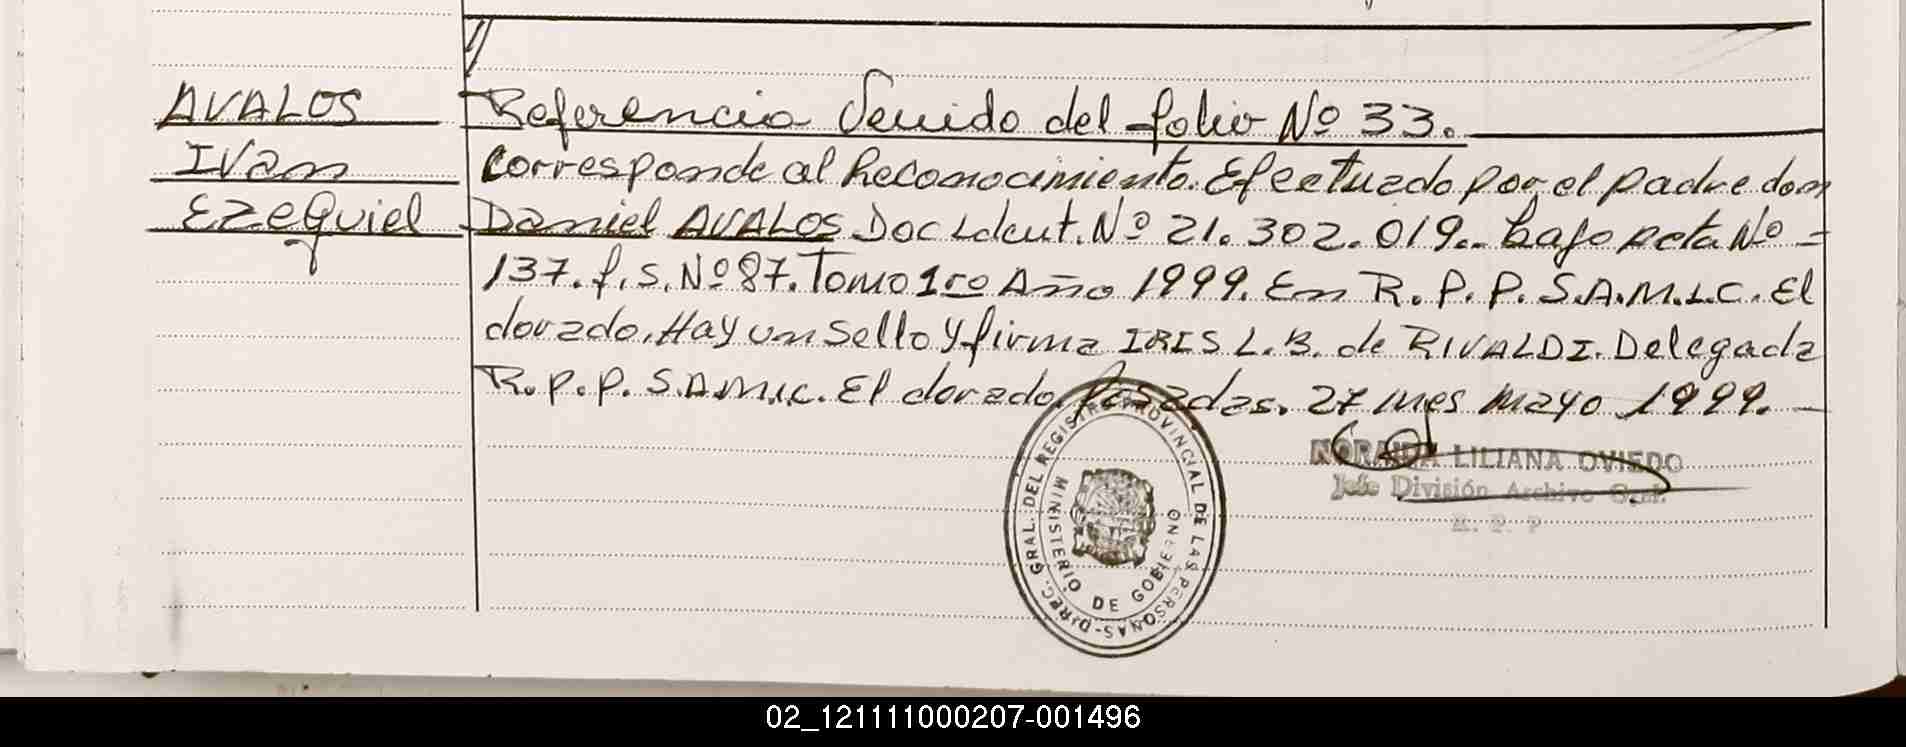 AVALOS
Ivan
Ezequiel
Referencia Venido del folio Nº 33.
Corresponde al Reconocimiento. Efectuado por el padre don
Daniel AVALOS Doc Ident. Nº 21.302.019.. bajo acta Nº -
137. f.s. Nº 87. Tomo 1ro Año 1999. En R.P.P. S.A.M.I.C. El
dorado. Hay un sello y firma IRIS L.B. de RIVALDI. Delegada
R.P.P. S.A.M.I.C. El dorado. Posadas. 27 mes mayo 1999. -
NORAIDA LILIANA OVIEDO
Jefe División Archivo Gral.
R. P. P
DIREC. GRAL. DEL REGISTRO PROVINCIAL DE LAS PERSONAS-
MINISTERIO DE GOBIERNO
02_121111000207-001496